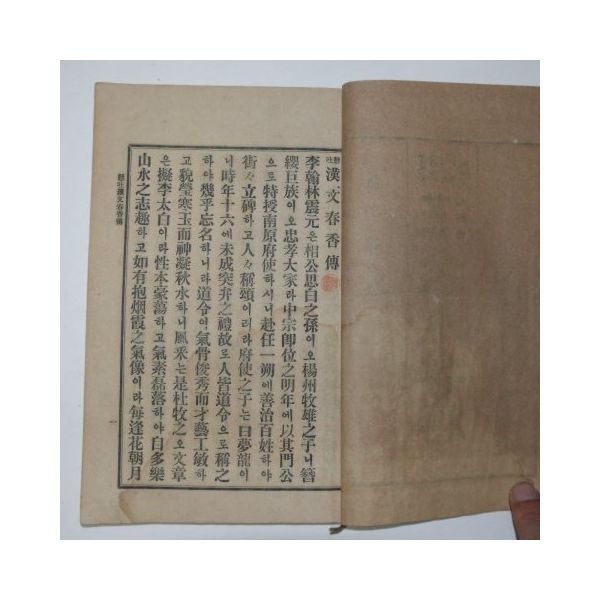 懸吐漢文春香傳
李翰林震元은相公思白之孫이오楊州牧雄之子니簪
纓巨族이오忠孝大家라中宗卽位之明年에以其門公
으로特授南原府使하시니赴任一朔에善治百姓하야
街々立碑하고人々稱頌이러라府使之子는曰夢龍이
니時年十六에未成突弁之禮故로人皆道令으로稱之
하야幾乎忘名하니라道令이氣骨俊秀而才藝工敏하
고貌瑩寒玉而神凝秋水하니風采는是杜牧之오文章
은擬李太白이라性本豪蕩하고氣素磊落하야自多樂
山水之志趣하고如有抱烟霞之氣像이라每逢花朝月
懸吐漢文春香傳
一